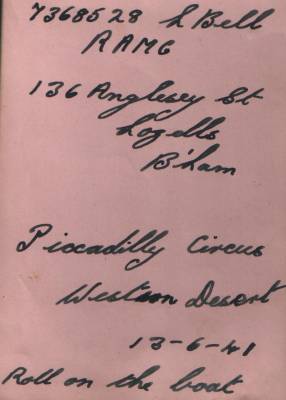 7368528 L Bell
RAMC
136 Anglesey St
Lozells
B'ham
Piccadilly Circus
Western Desert
13-6-41
Roll on the boat